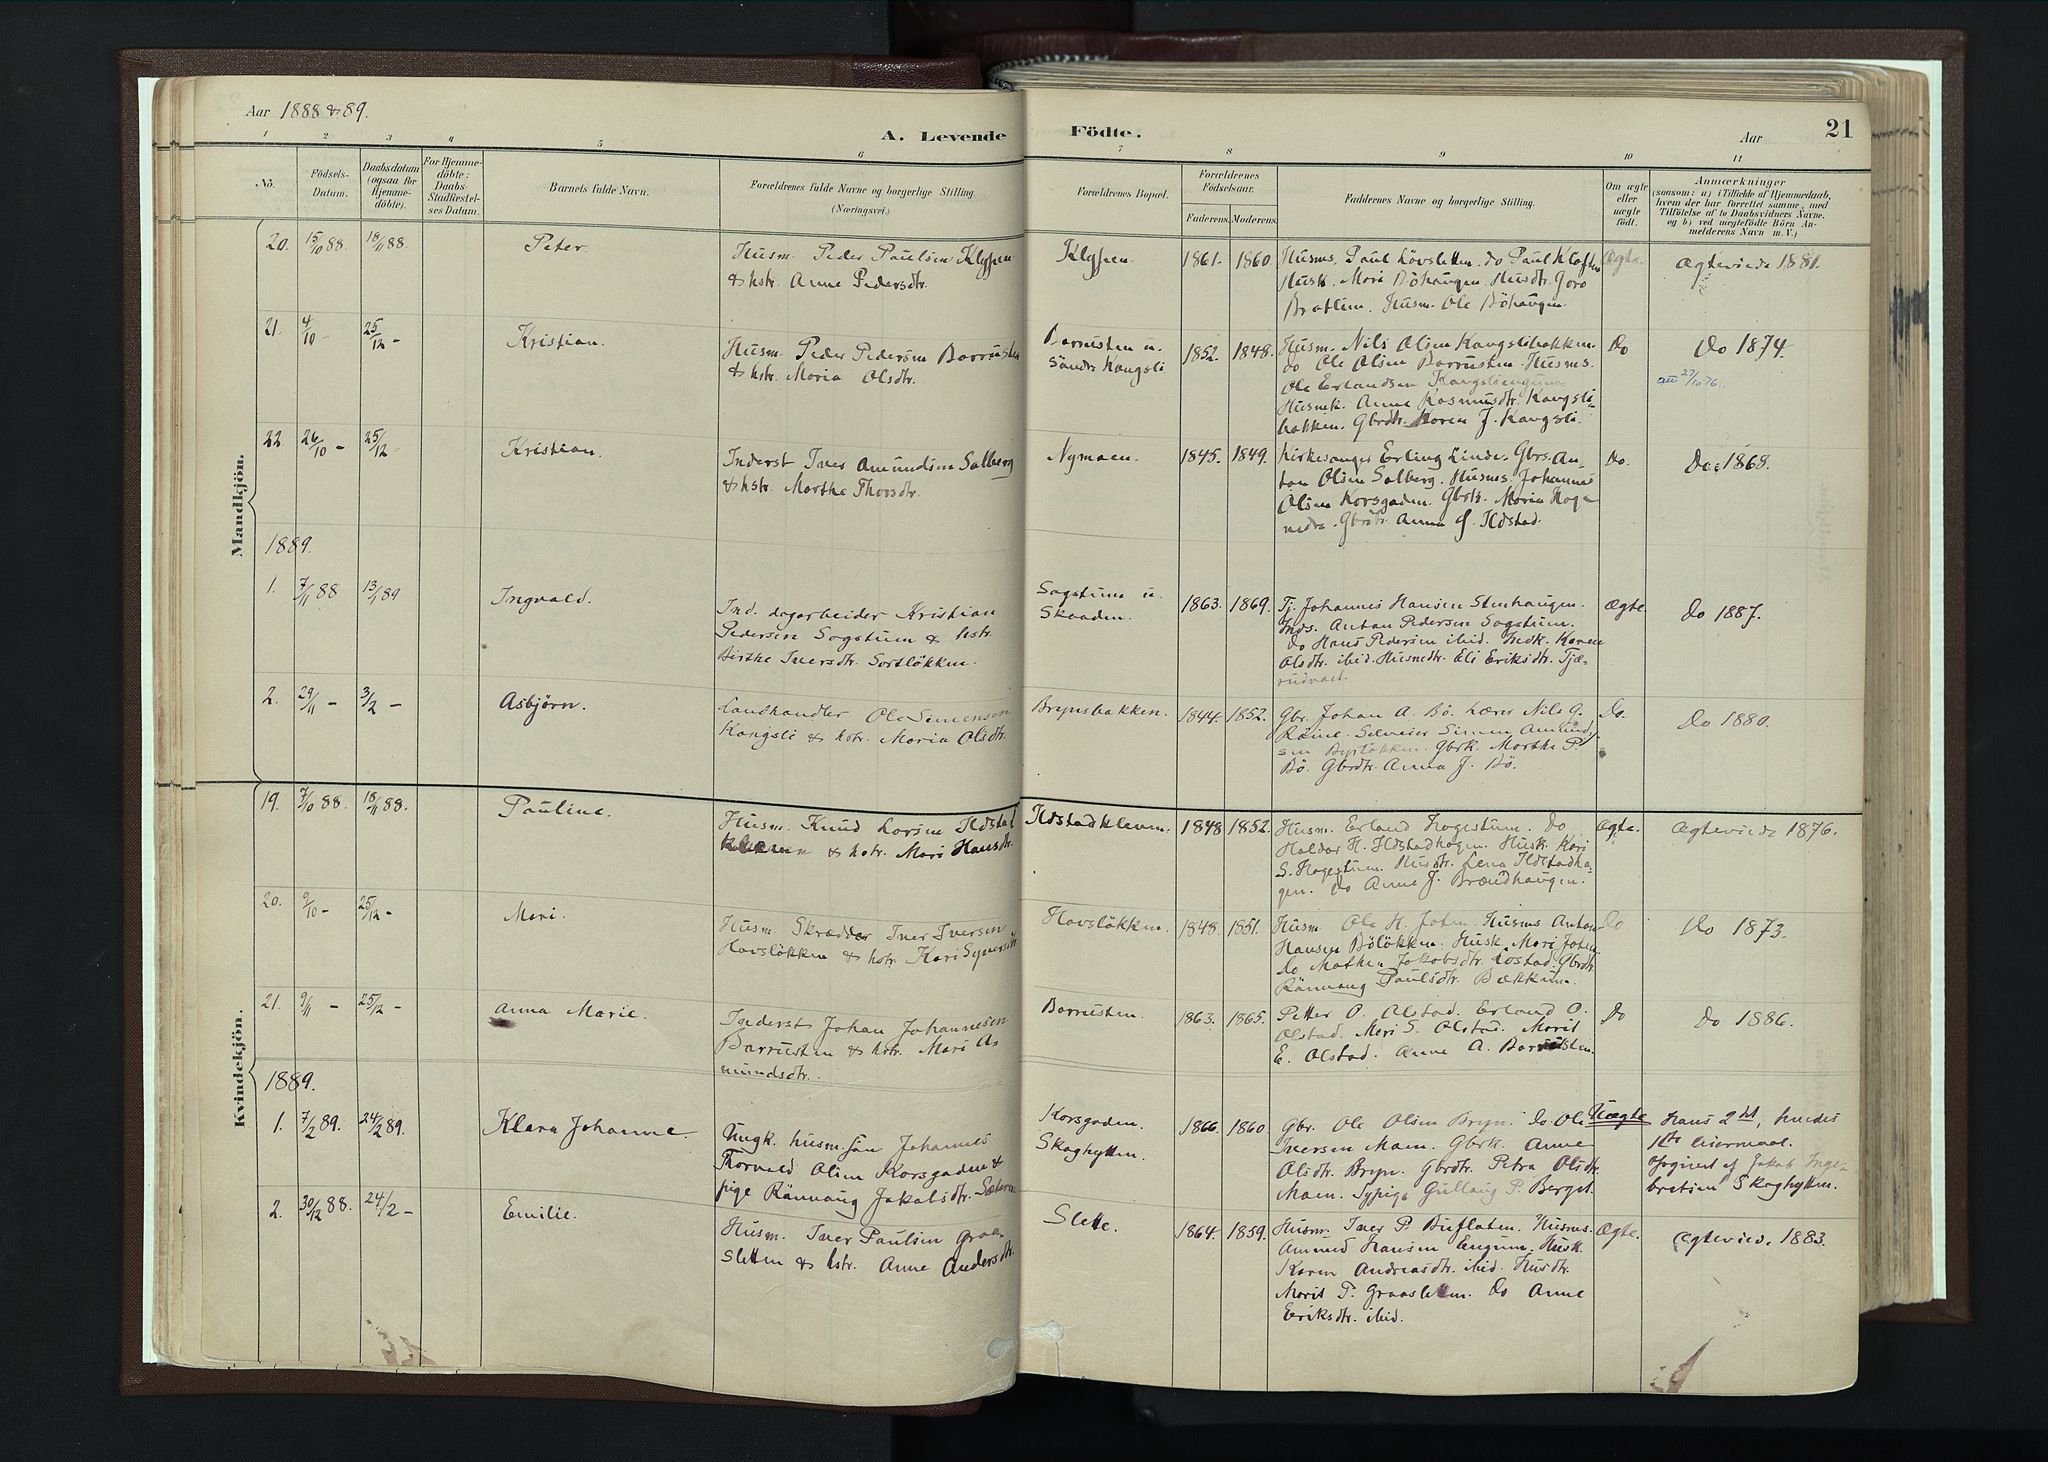 Aar 1888 & 89.
A. Levende Födte.
Aar
21
1 2 3 4 5 6 7 8 9 10 11
No.
Födsels-Datum.
Daabsdatum (ogsaa for Hjemme-döbte).
For Hjemme-döbte: Daabs-Stadfæstel-ses Datum.
Barnets fulde Navn.
Forældrenes fulde Navne og borgerlige Stilling. (Næringsvei.)
Forældrenes Bopæl.
Forældrenes Födselsaar.
Faderens. Moderens.
Faddernes Navne og borgerlige Stilling.
Om ægte eller uægte födt.
Anmærkninger
(saasom: a) i Tilfælde af Hjemmedaab, hvem der har forrettet samme, med Tilföielse af to Daabsvidners Navne, og b) ved uægtefödte Börn An-melderens Navn m. V.)
Mandkjön.
20. 15/10 88. 18/11 88. Peter.
Husm. Peder Paulsen Klypen
& hstr. Anne Pedersdtr.
Klypen. 1861. 1860.
Husms. Paul Lövsletten. do Paul Kloften
Husk. Mari Böhaugen. Husdtr. Goro
Bratlien. Husm. Ole Böhaugen.
Ægte. Ægteviede 1881.
21. 4/10 - 25/12 - Kristian.
Husm. Peder Pedersen Borrusten
& hstr. Maria Olsdtr.
Borrusten u.
Söndre Kongsli
1852. 1848.
Husm. Nils Olsen Kongslibakken.
do Ole Olsen Borrusten. Husms.
Ole Erlandsen Kongsliengum
Husmk. Anne Rasmusdtr. Kongsli-
bakken. Gbrdtr. Karen J. Kongsli.
Do Do 1874.
au 27/10 76.
22 26/10 - 25/12 - Kristian.
Inderst Iver Amundsen Solberg
& hstr. Marthe Thorsdtr.
Nymoen. 1845. 1849.
Kirkesanger Erling Linde. Gbrs. An-
ton Olsen Solberg. Husms. Johannes
Olsen Korsgaden. Gbrk. Maria Hage
nedre. Gbrdtr. Anna J. Ildstad.
Do. Do. 1868.
1889.
1. 7/11 88 13/1 89 Ingvald.
Ind. dagarbeider Kristian
Pedersen Sogstum & hstr.
Birthe Iversdtr. Sortlökken.
Sogstum u.
Skaaden.
1863. 1869.
Tj. Johannes Hansen Stenhaugen.
Inds. Anton Pedersen Sogstum.
Do Hans Pedersen ibid. Indk. Karen
Olsdtr. ibid. Husmdtr. Eli Eriksdtr. Tjæ-
rudvald.
Ægte. Do 1887.
2. 29/11 - 3/2 - Asbjørn.
Landhandler Ole Simensen
Kongsli & hstr. Maria Olsdtr.
Brynsbakken. 1844. 1852.
Gbr. Johan A. Bö. Lærer Nils G.
Röine. Selveier Simen Amund-
sen Byrlökken. Gbrk. Marthe P.
Bö. Gbrdtr. Anna J. Bö.
Do. Do 1880.
Kvindekjön.
19. 7/10 88. 18/11 88. Pauline.
Husm. Knud Larsen Ildstad
kleven & hstr. Mari Hansdtr.
Ildstadkleven. 1848 1852.
Husm. Erland Hagestuen. Do
Haldor H. Ildstadhagen. Husk. Kari
S. Hagestuen. Husdtr. Lena Ildstadha-
gen. do Anne J. Brændhaugen.
Ægte. Ægteviede 1876.
20. 9/10 - 25/12 - Mari.
Husm. Skrædder Iver Iversen
Hovslökken & hstr. Kari Syversdtr
Hovslökken. 1848. 1851.
Husm Ole H. Joten. Husms Anton
Hansen Bölökken. Husk. Mari Joten
do Mathea Jakobsdtr. Lostad. Gbrdtr.
Rönnaug Paulsdtr. Bækkum.
Do Do 1873.
21. 9/11 - 25/12 - Anna Marie.
Inderst Johan Johannesen
Borrusten & hstr. Mari A-
mundsdtr.
Borrusten. 1863. 1865.
Petter O. Olstad. Erland O.
Olstad. Mari S. Olstad. Marit
E. Olstad. Anne A. Borrusten.
Do Do 1886.
1889.
1. 7/2 89. 24/2 89. Klara Johanne.
Ungk. husm. sön Johannes
Thorvald Olsen Korsgaden &
pige Rönnaug Jakobsdtr. Sæteren
Korsgaden.
Skoghytten.
1866 1860
Gbr. Ole Olsen Bryn. do. Ole
Iversen Moen. Gbrk. Anne
Olsdtr. Bryn. Gbrdtr. Petra Olsdtr.
Moen. Sypige Gullaug P. Berget.
Uægte
Hans 2det, hendes
1ste leiermaal.
Opgivet af Jakob Inge-
bretsen Skoghytten.
2. 30/12 88. 24/2 - Emilie.
Husm. Iver Paulsen Graa-
sletten & hstr. Anne Andersdtr.
Slette. 1864. 1859.
Husm. Iver P. Buflaten. Husms.
Amund Hansen Engum. Husk.
Karen Andreasdtr. ibid. Husdtr.
Marit P. Graasletten. do Anne
Eriksdtr. ibid.
Ægte. Ægtevied. 1883.